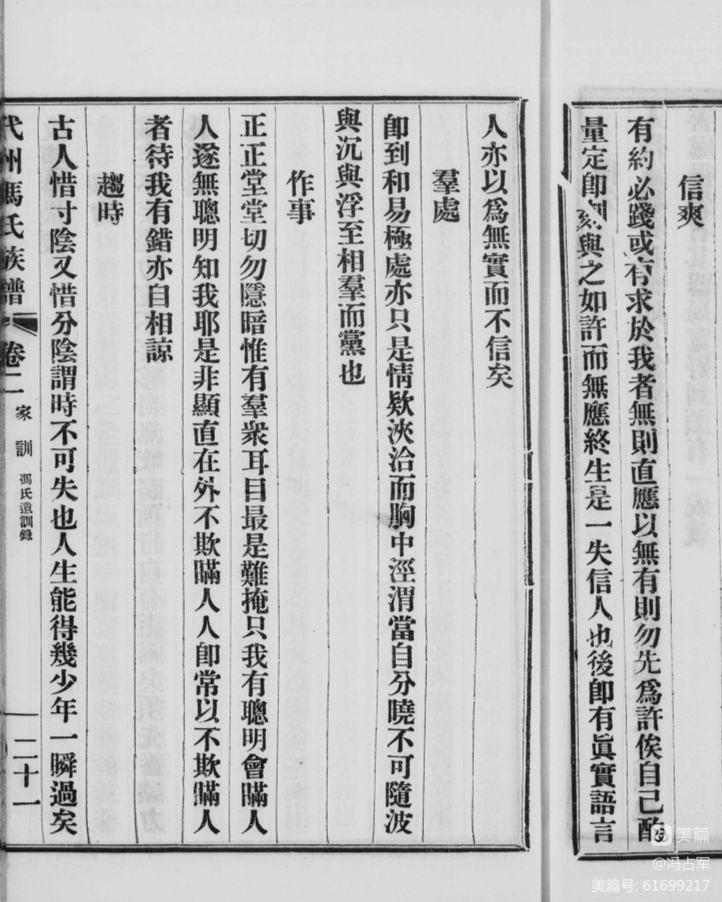 信爽
有約必踐或有求於我者無則直應以無有則勿先爲許俟自己酌
量定卽刻與之如許而無應終生是一失信人也後卽有眞實語言
人亦以爲無實而不信矣
羣處
卽到和易極處亦只是情欵浹洽而胸中涇渭當自分曉不可隨波
與沉與浮至相羣而黨也
作事
正正堂堂切勿隱暗惟有羣衆耳目最是難掩只我有聰明會瞞人
人遂無聰明知我耶是非顯直在外不欺瞞人人卽常以不欺瞞人
者待我有錯亦自相諒
趨時
古人惜寸陰又惜分陰謂時不可失也人生能得幾少年一瞬過矣
代州馮氏族譜 卷二 家訓 馮氏遺訓錄 二十一
美篇
@冯占军
美篇号: 61699217